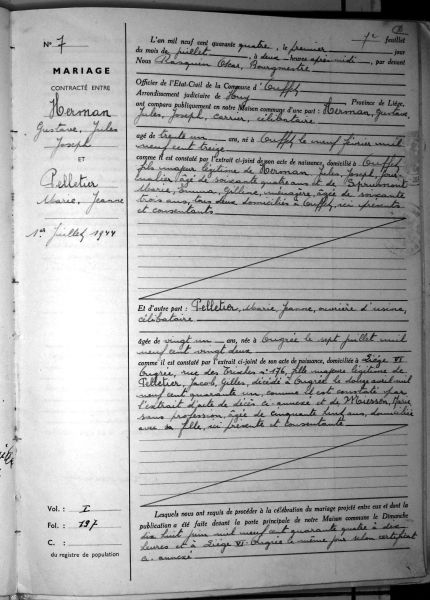 N° 7
MARIAGE
CONTRACTÉ ENTRE
Herman
Gustave, Jules
Joseph
ET
Pelletier
Marie, Jeanne
1er Juillet 1944
Vol. : I
Fol. : 137
C. :
du registre de population
1er feuillet
L'an mil neuf cent quarante quatre, le premier jour
du mois de juillet, à deux heures après-midi, par devant
Nous Oscar, Bourgmestre
Officier de l'Etat-Civil de la Commune d'Ouffet
Arrondissement judiciaire de Huy, Province de Liège,
ont comparu publiquement en notre Maison commune d'une part : Herman, Gustave,
Jules, Joseph, carrier, célibataire
âgé de trente un ans, né à Ouffet le neuf février mil
neuf cent treize
comme il est constaté par l'extrait ci-joint de son acte de naissance, domicilié à Ouffet
fils majeur légitime de Herman, Jules, Joseph, jour
nalier âgé de soixante quatre ans et de
Marie, Emma, ménagère, âgée de soixante
trois ans, tous deux domiciliés à Ouffet, ici présents
et consentants
Et d'autre part : Pelletier, Marie, Jeanne, ouvrière d'usine,
célibataire
âgée de vingt un ans, née à Ougrée le sept juillet mil
neuf cent vingt deux
comme il est constaté par l'extrait ci-joint de son acte de naissance, domiciliée à Liège VI
Ougrée, rue des n° 176, fille majeure légitime de
Pelletier, Jacob, Gilles, décédé à Ougrée le douze avril mil
neuf cent quarante un, comme il est constaté par
l'extrait d'acte de décès ci-annexé et de Marie
sans profession, âgée de cinquante neuf ans, domiciliée
avec sa fille, ici présente et consentante
Lesquels nous ont requis de procéder à la célébration du mariage projeté entre eux et dont la
publication a été faite devant la porte principale de notre Maison commune le Dimanche
dix huit juin mil neuf cent quarante quatre à dix
heures et à Liège VI Ougrée le même jour selon certificat
ci-annexé